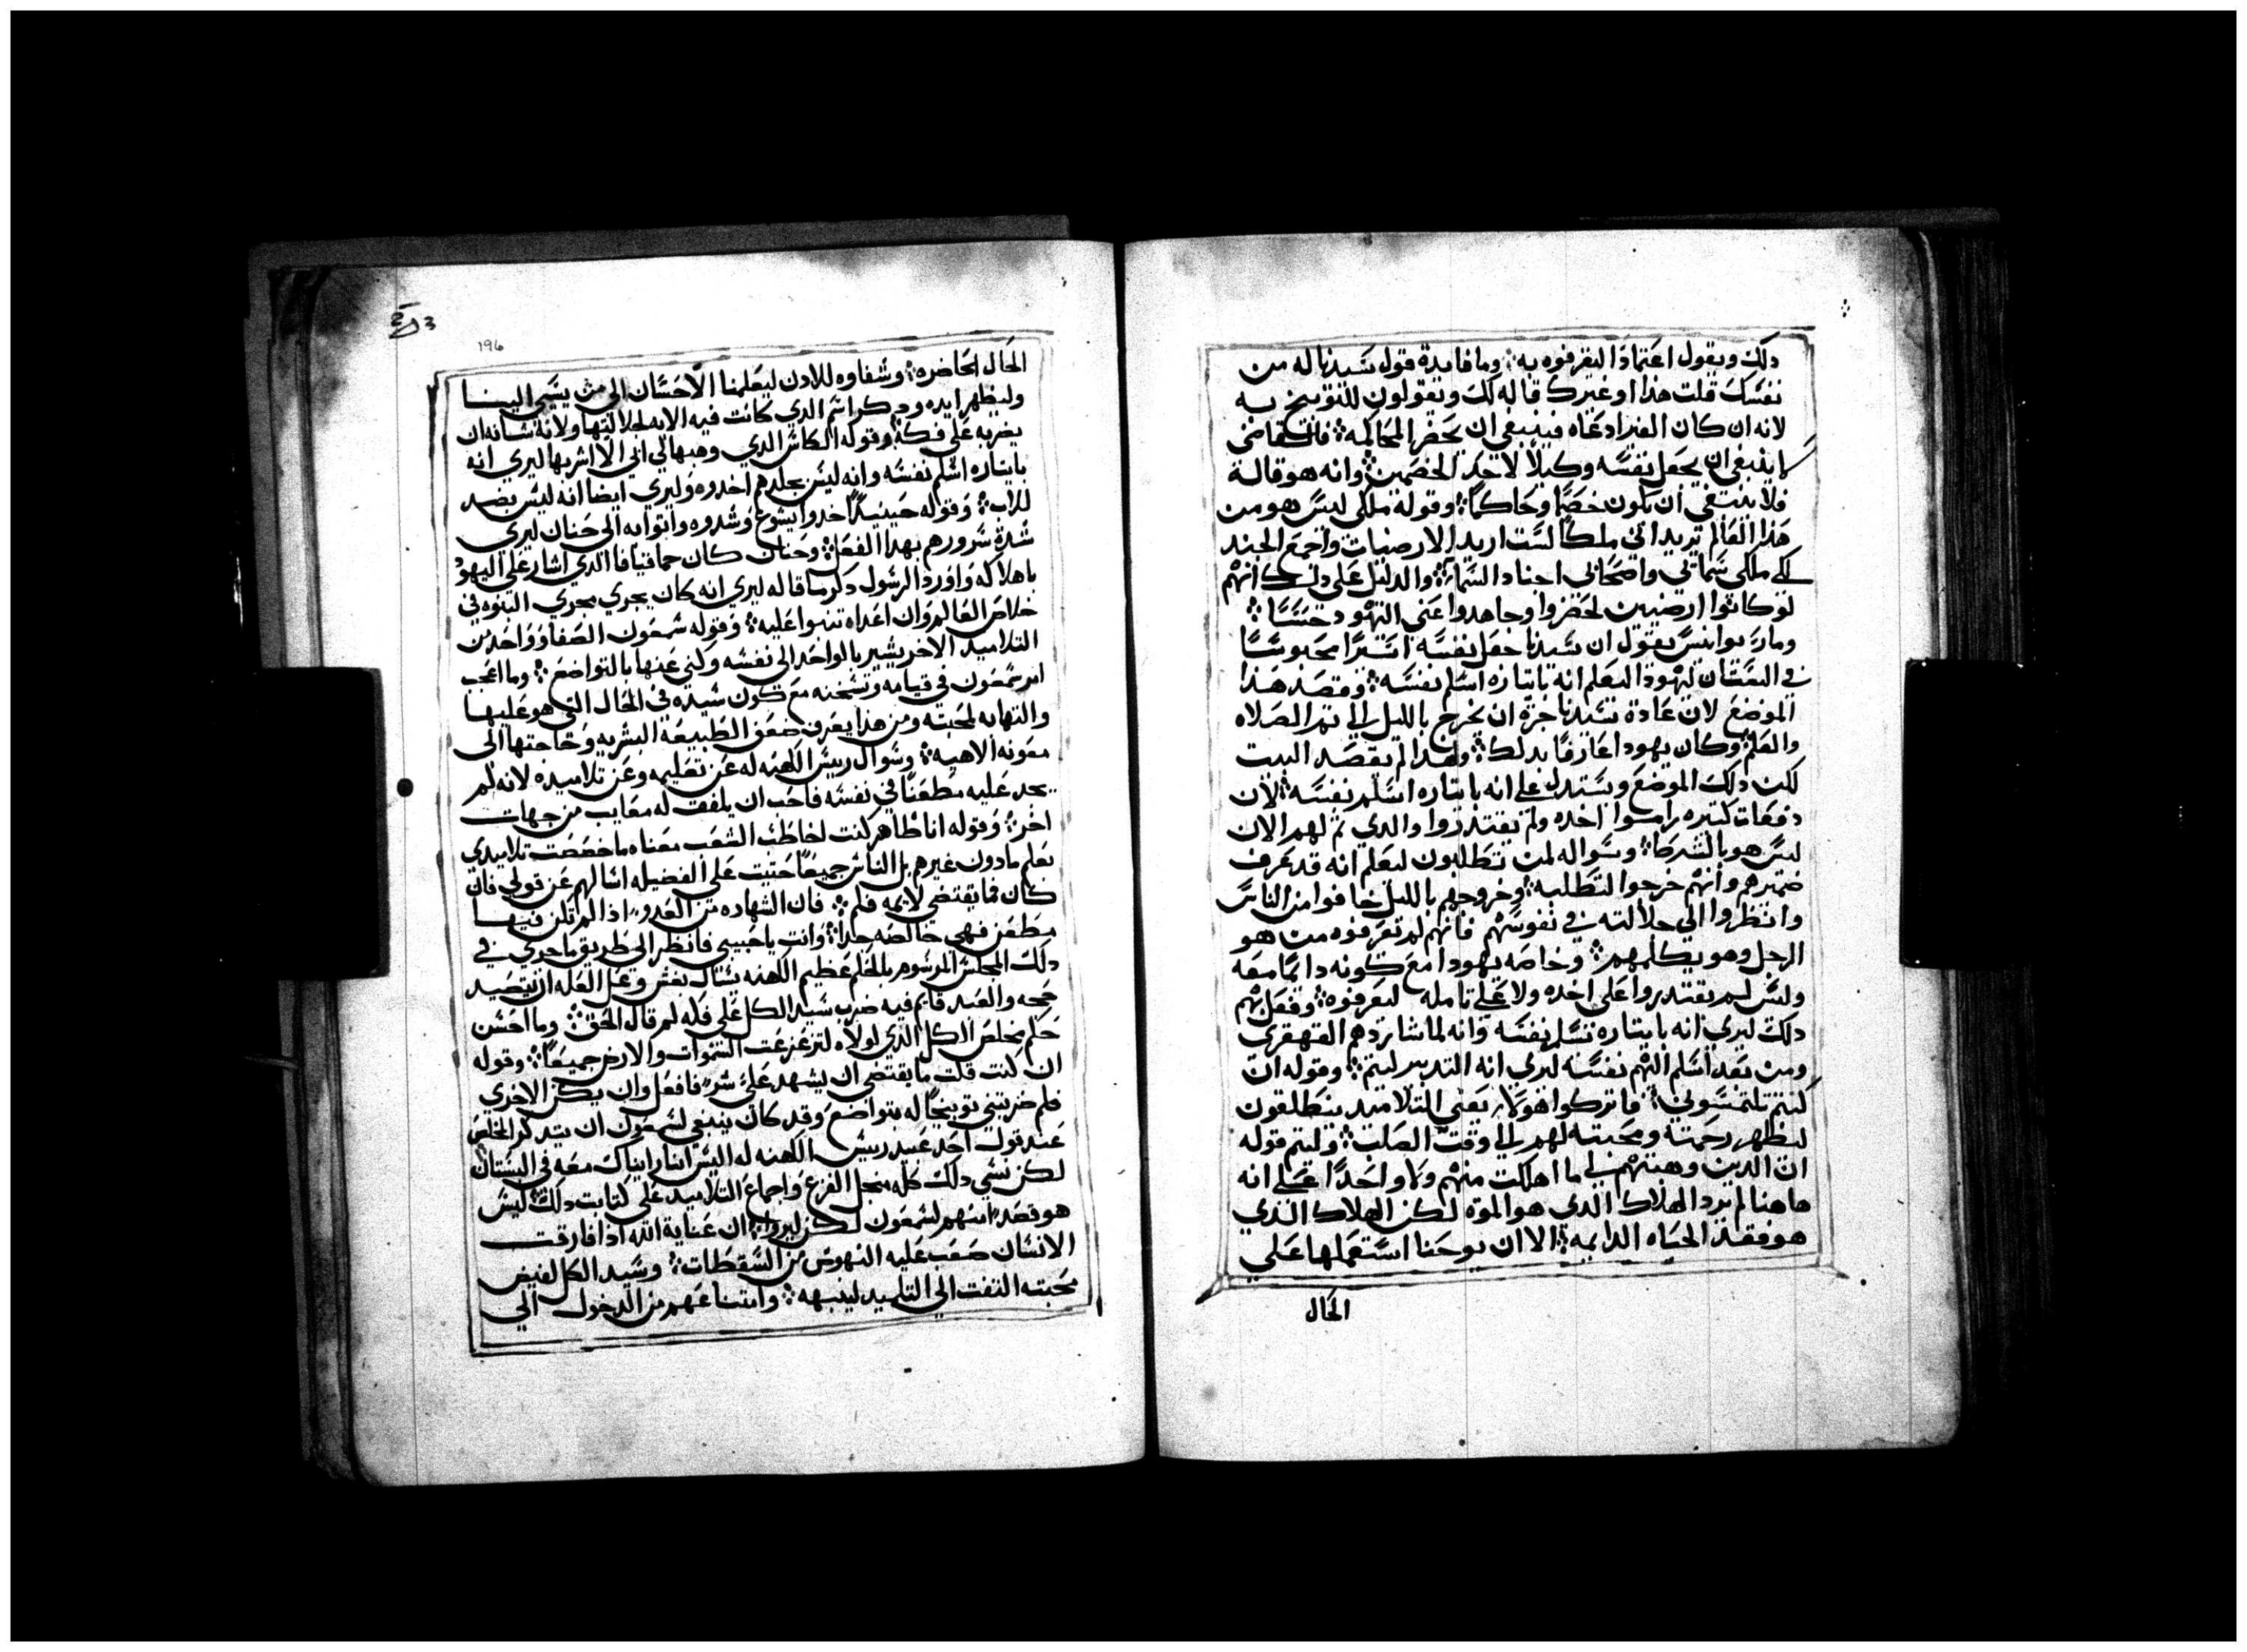 دلك ويقول اعتمادا اليعرفوه به ⁘ وما فايدة قول سيدنا له من
نفسك قلت هذا او غيرك قاله لك ويقولون للتوبيخ به
لانه ان كان الغير ادعاه فينبغي ان يحضر المحاكمه ⁘ فان القاضي
لا ينبغي ان يجعل نفسه وكيلا لاحد الخصمين ⁘ وانه هو قاله
فلا ينبغي ان يكون خصما وحاكما ⁘ وقوله ملكي ليس هو من
هذا العالم يريد اني ملكا لست اريد الارضيات واجمع الجند
لكن ملكي سماتي واصحابي اجناد السماء ⁘ والدليل على دلك انهم
لو كانوا ارضيين لحضروا وجاهدوا عني اليهود حسسا ⁘
ومار يوانيس يقول ان سيدنا جعل نفسه محبوسا
في البستان ليهودا ليعلم انه بايتاره اسلم نفسه ⁘ وقصد هدا
الموضع لان عادة سيدنا جرة ان يخرج بالليل الي تم الصلاه
والعلم وكان يهودا عارفا بدلك ⁘ ولهدا لم يقصد البيت
لكن دلك الموضع ويستدل على انه بايتاره اسلم نفسه ⁘ لان
دفعات كتيره راموا اخده ولم يقتدروا والدي تم لهم الان
ليس هو بالشركا ⁘ وسواله لمن تطلبون ليعلم انه قد عرف
ضميرهم وانهم خرجوا لتطلبه ⁘ وخروجهم بالليل خافوا من الناس
وانظروا الي جلالته في نفوسهم فانهم لم يعرفوه من هو
الرجل وهو يكلمهم ⁘ وخاصه يهودا مع كونه دايما معه
وليس لم يقتدروا على اخده ولا على تامله ليعرفوه ⁘ وفعل بهم
دلك ليري انه بايتاره يسلم نفسه وانه لما شا يردهم القهقري
ومن بعد اسلم اليهم نفسه ليري انه التدبير ليتم ⁘ وقوله ان
كنتم تلتمسوني ⁘ فاتركوا هولاء يعني التلاميد ينطلقون
ليظهر رحمته ومحبته لهم الي وقت الصلب ⁘ وليتم قوله
ان الدين وهبتهم لي ما اهلكت منهم ولا واحدا على انه
هاهنا لم يرد الهلاك الدي هو الموة لكن الهلاك الذي
هو فقد الحياه الدايمه ⁘ الا ان يوحنا استعملها على
الحال
196
الحال الحاضره ⁘ وشفاوه للادن ليعلمنا الاحسان الي من يسي الينا
وليظهر ايده ودكر اسم الدي كانت فيه الايه لجلالتها ولانه شانه ان
يضربه على فكه ⁘ وقوله الكاس الدي وهبها لي ابي الا اشربها ليري انه
بايتاره اسلم نفسه وانه ليس بجلدهم اخدوه وليري ايضا انه ليس بضد
للاب ⁘ وقوله حينيد اخدوا يشوع وشدوه واتوا به الي حنان ليري
شدة شرورهم بهدا الفعل ⁘ وحنان كان حما قيافا الدي اشار على اليهود
باهلاكه واورد الرسول دكر ما قاله ليري انه كان يجري مجري النبوه في
خلاص العالم وان اعداه تنبوا عليه ⁘ وقوله شمعون الصفا وواحد من
التلاميد الاخر يشير بالواحد الي نفسه وكني عنها بالتواضع ⁘ وما اعجب
امر شمعون في قيامه وتسخنه مع كون سيده في الحال التي هو عليها
والتهابه لمحبته ومن هدا يعرف ضعف الطبيعة البشريه وحاجتها الي
معونه الاهيه ⁘ وسوال رييس الكهنه له عن تعليمه وعن تلاميده لانه لم
يجد عليه مطعنا في نفسه فاحب ان يلفق له معايب من جهات
اخر ⁘ وقوله انا ظاهر كنت اخاطب الشعب معناه ما خصصت تلاميدي
بعلم ما دون غيرهم بل الناس جميعا حتيت على الفضيله اسالهم عن قولي فان
كان مما يقتضي لايمه فلم ⁘ فان الشهاده من العدو اذا لم يكن فيها
مطعن فهي خالصه جدا ⁘ وانت يا حبيبي فانظر الي طريق ما جري في
دلك المجلس المرسوم بالحلم عظيم الكهنه يسال بغش وعل العله ان يتصيد
حجه والعبد قايم فيه ضرب سيد الكل على فكه لم قال الحق ⁘ وما احسن
حلم مخلص الكل الدي لولاه لتزعزعت السموات والارض جميعا ⁘ وقوله
ان كنت قلت ما يقتضي ان يشهد على شر فافعل وان يكن الاخري
فلم ضربتني توبيخا له بتواضع وقد كان ينبغي لشمعون ان يتدكر المخلص
عند قول احد عبيد رييس الكهنه له اليس انا رايناك معه في البستان
لكن نسي دلك كله من جل الفزع واجماع التلاميد على كتابت دلك ليس
هو قصدا منهم لشمعون لكن ليروا ان عناية الله اذا فارقت
الانسان صعب عليه النهوض من السقطات ⁘ وسيد الكل لفيض
محبته التفت الي التلميد لينبهه ⁘ وامتناعهم من الدخول الي